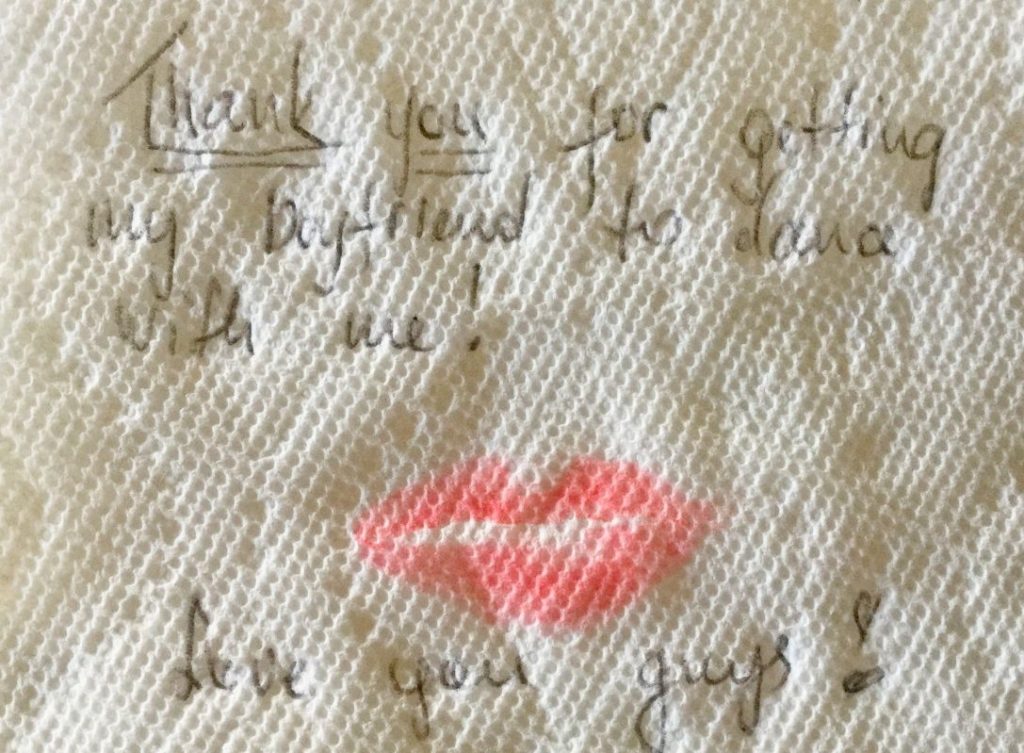 Thank you for getting
my boyfriend to dance
with me!
Love you guys!